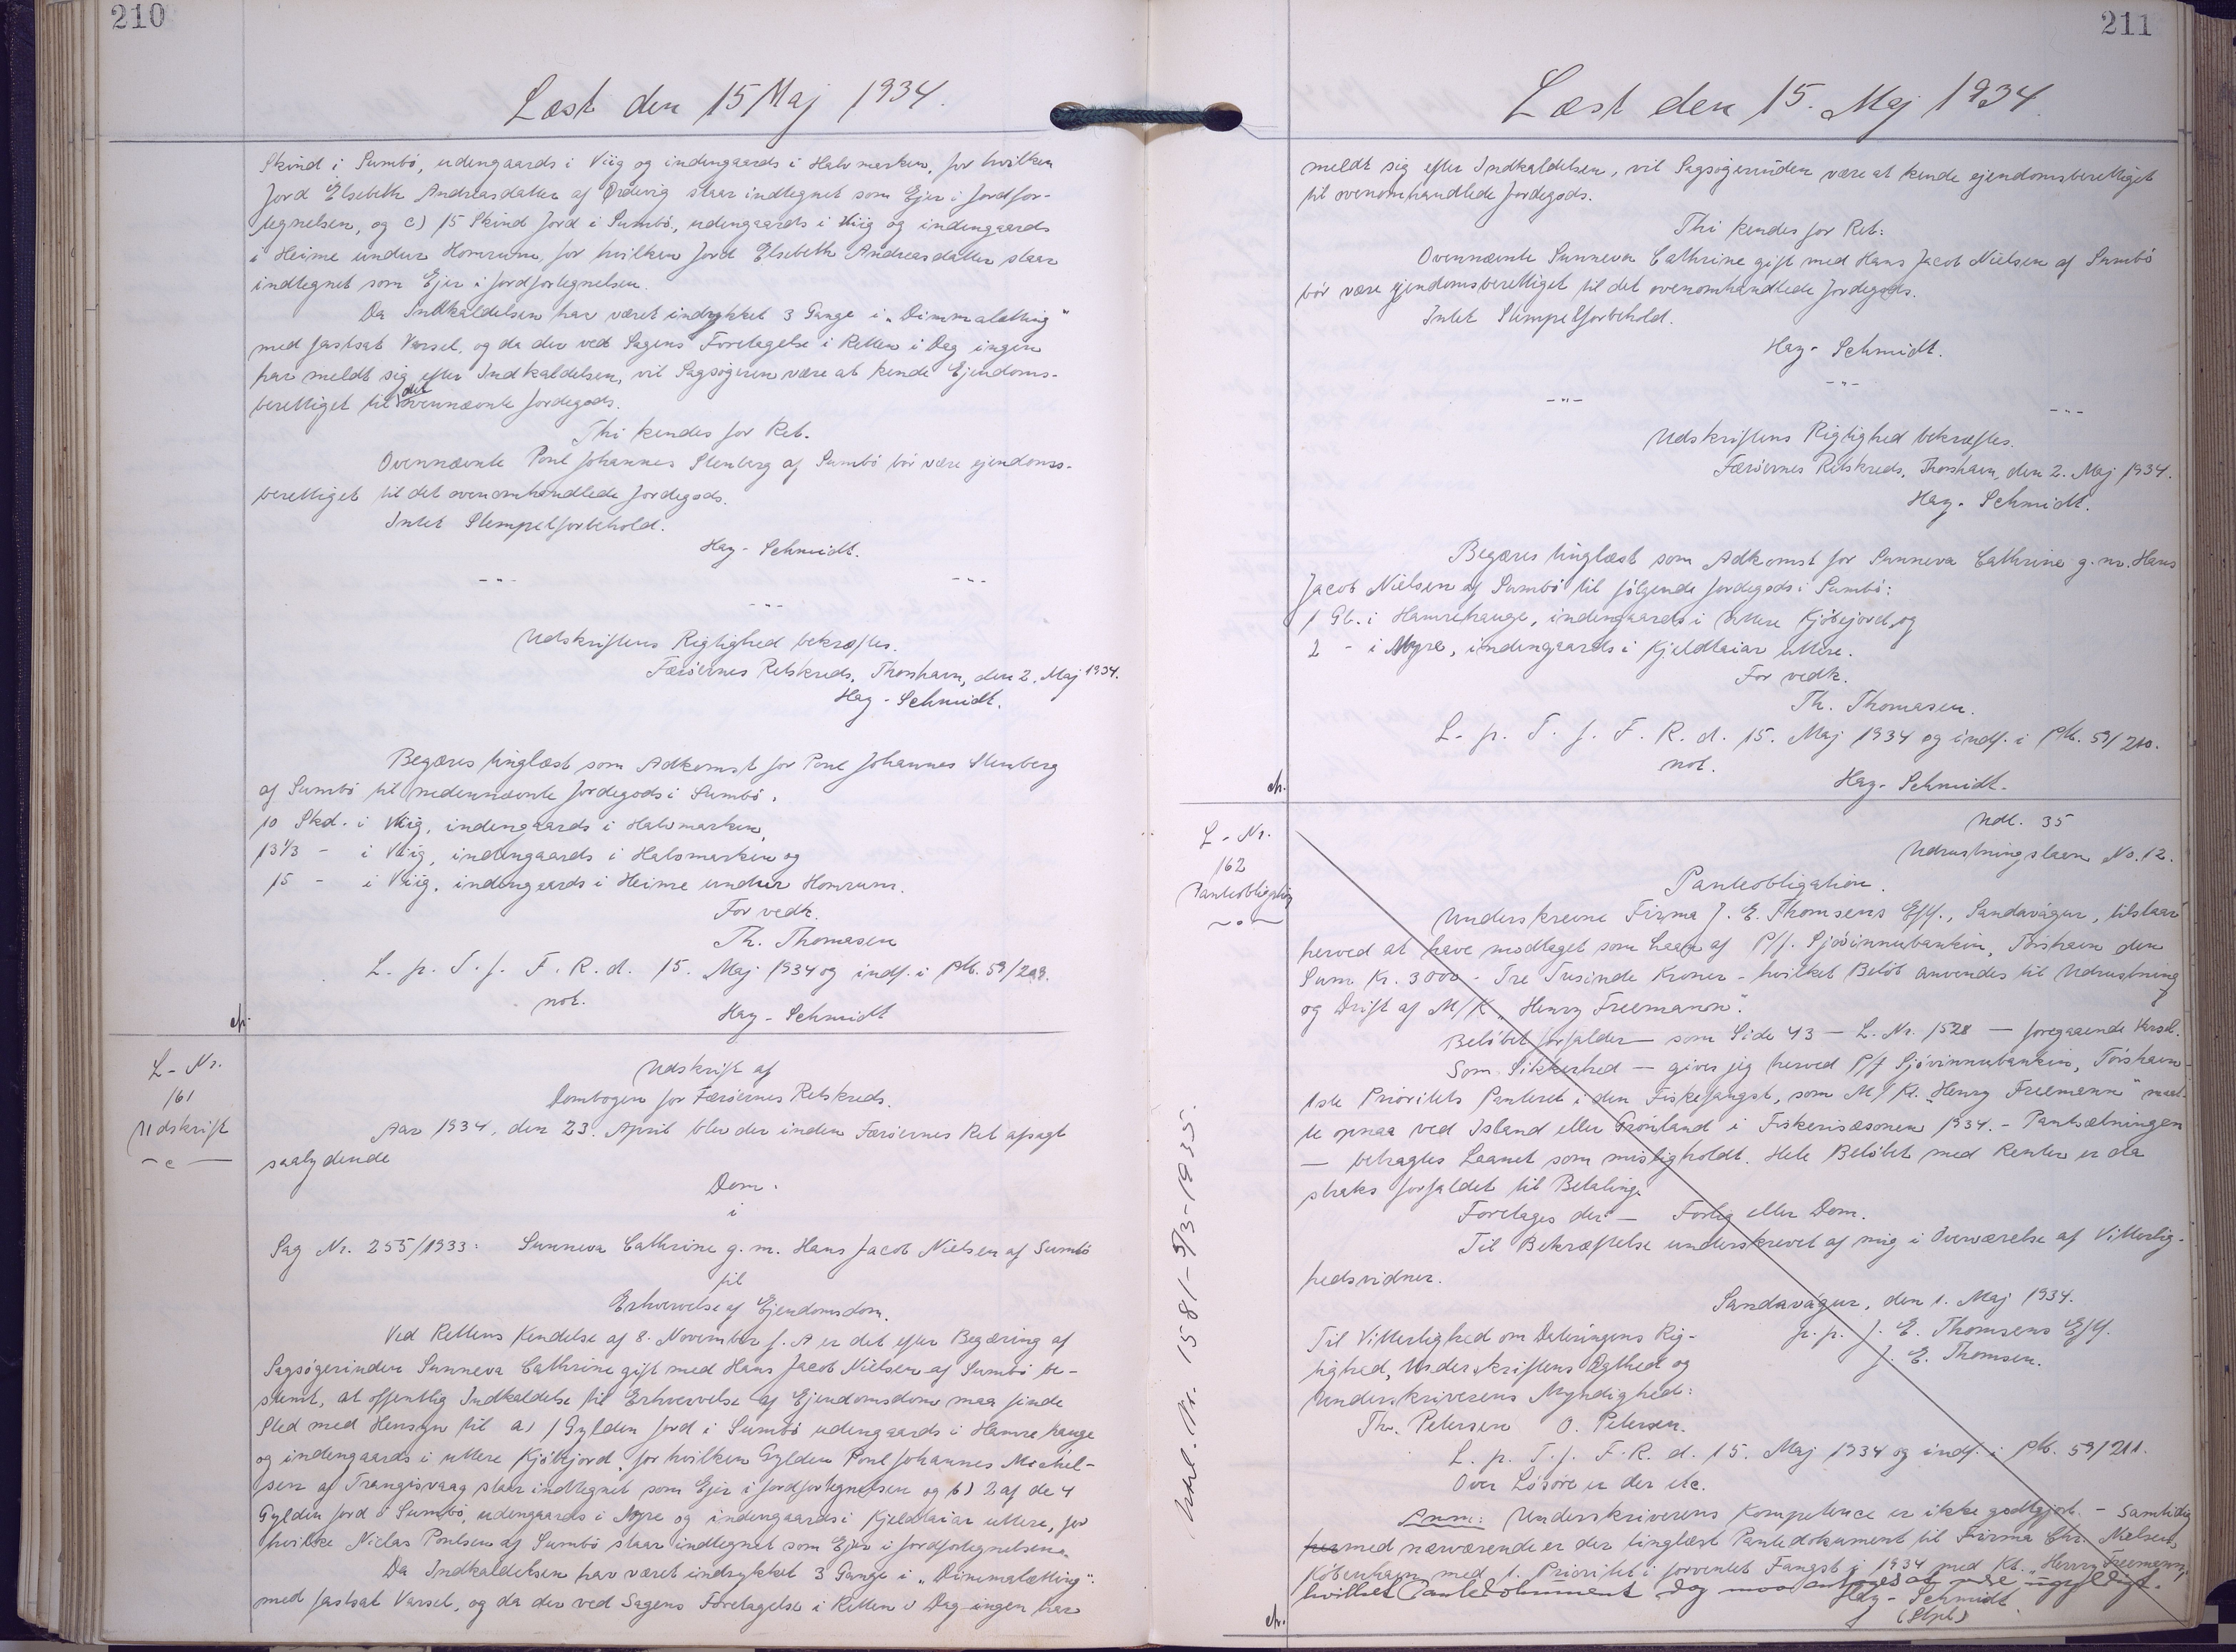 210
Læst den 15 Maj 1934.
Skind i Sumbö, udengaards i Viig og indengaards i Halvmarken, for hvilken
Jord Elsebeth Andreasdatter af Ördevig staar indtegnet som Ejer i Jordfor-
tegnelsen, og c) 15 Skind Jord i Sumbö, udengaards i Viig og indengaards
i Heime undur Homrum, for hvilken Jord Elsebeth Andreasdatter staar
indtegnet som Ejer i Jordfortegnelsen.
Da Indkaldelsen har været indrykket 3 Gange i „Dimmalætting"
med fastsat Varsel, og da der ved Sagens Foretagelse i Retten i Dag ingen
har meldt sig efter Indkaldelsen, vil Sagsøgeren være at kende Ejendoms-
berettiget til det ovennævnte Jordegods.
Thi kendes for Ret.
Ovennævnte Poul Johannes Stenberg af Sumbö bör være ejendoms-
berettiget til det ovenomhandlede Jordegods.
Intet Stempelforbehold.
Hay-Schmidt.
-"- -"-
-"-
Udskriftens Rigtighed bekræftes.
Færöernes Retskreds, Thorshavn, den 2. Maj 1934.
Hay-Schmidt.
Begæres tinglæst som Adkomst for Poul Johannes Stenberg
af Sumbö til nedennævnte Jordegods i Sumbö.
10 Skd. i Viig, indengaards i Halvmarken,
13 1/3 - i Viig, indengaards i Halvmarken og
15 - i Viig, indengaards i Heime undur Homrum.
For vedk.
Th. Thomasen
L. p. T. f. F. R. d. 15. Maj 1934 og indf. i Ptb. 59/209.
not.
Hay-Schmidt
L-Nr.
161
Udskrift
Udskrift af
Dombogen for Færöernes Retskreds.
Aar 1934, den 23. April blev der inden Færöernes Ret afsagt
saalydende
Dom.
i
Sag Nr. 255/1933: Sunneva Cathrine g. m. Hans Jacob Nielsen af Sumbö
til
Erhvervelse af Ejendomsdom.
Ved Rettens Kendelse af 8. November f. A er det efter Begæring af
Sagsøgerinden Sunneva Cathrine gift med Hans Jacob Nielsen af Sumbö be-
stemt, at offentlig Indkaldelse til Erhvervelse af Ejendomsdom maa finde
Sted med Hensyn til a) 1 Gylden Jord i Sumbö udengaards i Hamrehauge
og indengaards i uttere Kjöbijord, for hvilken Gylden Poul Johannes Michel-
sen af Trangisvaag staar indtegnet som Ejer i Jordfortegnelsen og b) 2 af de 4
Gylden Jord i Sumbö, udengaards i Myre og indengaards i Kjeldtaiar uttere, for
hvilke Niclas Poulsen af Sumbö staar indtegnet som Ejer i Jordfortegnelsen.
Da Indkaldelsen har været indrykket 3 Gange i „Dimmalætting".
med fastsat Varsel, og da der ved Sagens Foretagelse i Retten i Dag ingen har
211
Læst den 15. Maj 1934
meldt sig efter Indkaldelsen, vil Sagsøgerinden være at kende ejendomsberettiget
til ovenomhandlede Jordegods.
Thi kendes for Ret:
Ovennævnte Sunneva Cathrine gift med Hans Jacob Nielsen af Sumbö
bör være ejendomsberettiget til det ovenomhandlede Jordegods.
Intet Stempelforbehold.
Hay-Schmidt.
-"-
-"- -"-
Udskriftens Rigtighed bekræftes.
Færöernes Retskreds, Thorshavn, den 2. Maj 1934.
Hay-Schmidt.
Begæres tinglæst som Adkomst for Sunneva Cathrine g. m. Hans
Jacob Nielsen af Sumbö til følgende Jordegods i Sumbö:
1 Gl. i Hamrehauge, indengaards i uttere Kjöbijord, og
2 - i Myre, indengaards i Kjeldtaiar uttere.
For vedk.
Th. Thomasen.
L. p. T. f. F. R. d. 15. Maj 1934 og indf. i Ptb. 59/210.
not.
Hay-Schmidt.
L-Nr.
162
Panteobligation
Udl. 35
Udrustningslaan No. 12.
Panteobligation.
Underskrevne Firma J. E. Thomsens Eftf., Sandavágur, tilstaar
herved at have modtaget som Laan af P/f. Sjóvinnubankin, Tórshavn den
Sum Kr. 3000 - Tre Tusinde Kroner - hvilket Beløb anvendes til Udrustning
og Drift af M/K „Henry Freemann".
Beløbet forfalder - som Side 43 - L. Nr. 1528 - foregaaende Varsel.
Som Sikkerhed - giver jeg herved P/f Sjóvinnubankin, Tórshavn -
1ste Prioritets Panteret i den Fiskefangst, som M/K. „Henry Freemann" maat-
te opnaa ved Island eller Grønland i Fiskerisæsonen 1934. - Pantsætningen
- betragtes Laanet som misligholdt. Hele Beløbet med Renter er da
straks forfaldet til Betaling.
Foretages der - Forlig eller Dom.
Til Bekræftelse underskrevet af mig i Overværelse af Vitterlig-
hedsvidner.
Sandavágur, den 1. Maj 1934.
p. p. J. E. Thomsens Eftf.
J. E. Thomsen.
Til Vitterlighed om Dateringens Rig-
tighed, Underskriftens Ægthed og
Underskriverens Myndighed:
Th. Petersen O. Petersen.
L. p. T. f. F. R. d. 15. Maj 1934 og indf. i Ptb. 59/211.
Over Løsöre er der etc.
Anm: Underskriverens Kompetence er ikke godtgjort. - Samtidig
med nærværende er der tinglæst Pantedokument til Firma Chr. Nielsen,
København med 1. Prioritet i forventet Fangst i 1934 med Kt. „Henry Freemann",
hvilket Pantedokument dog maa antages at være ugyldigt.
Hay-Schmidt
(Stpl)
1581-5/3-1935.